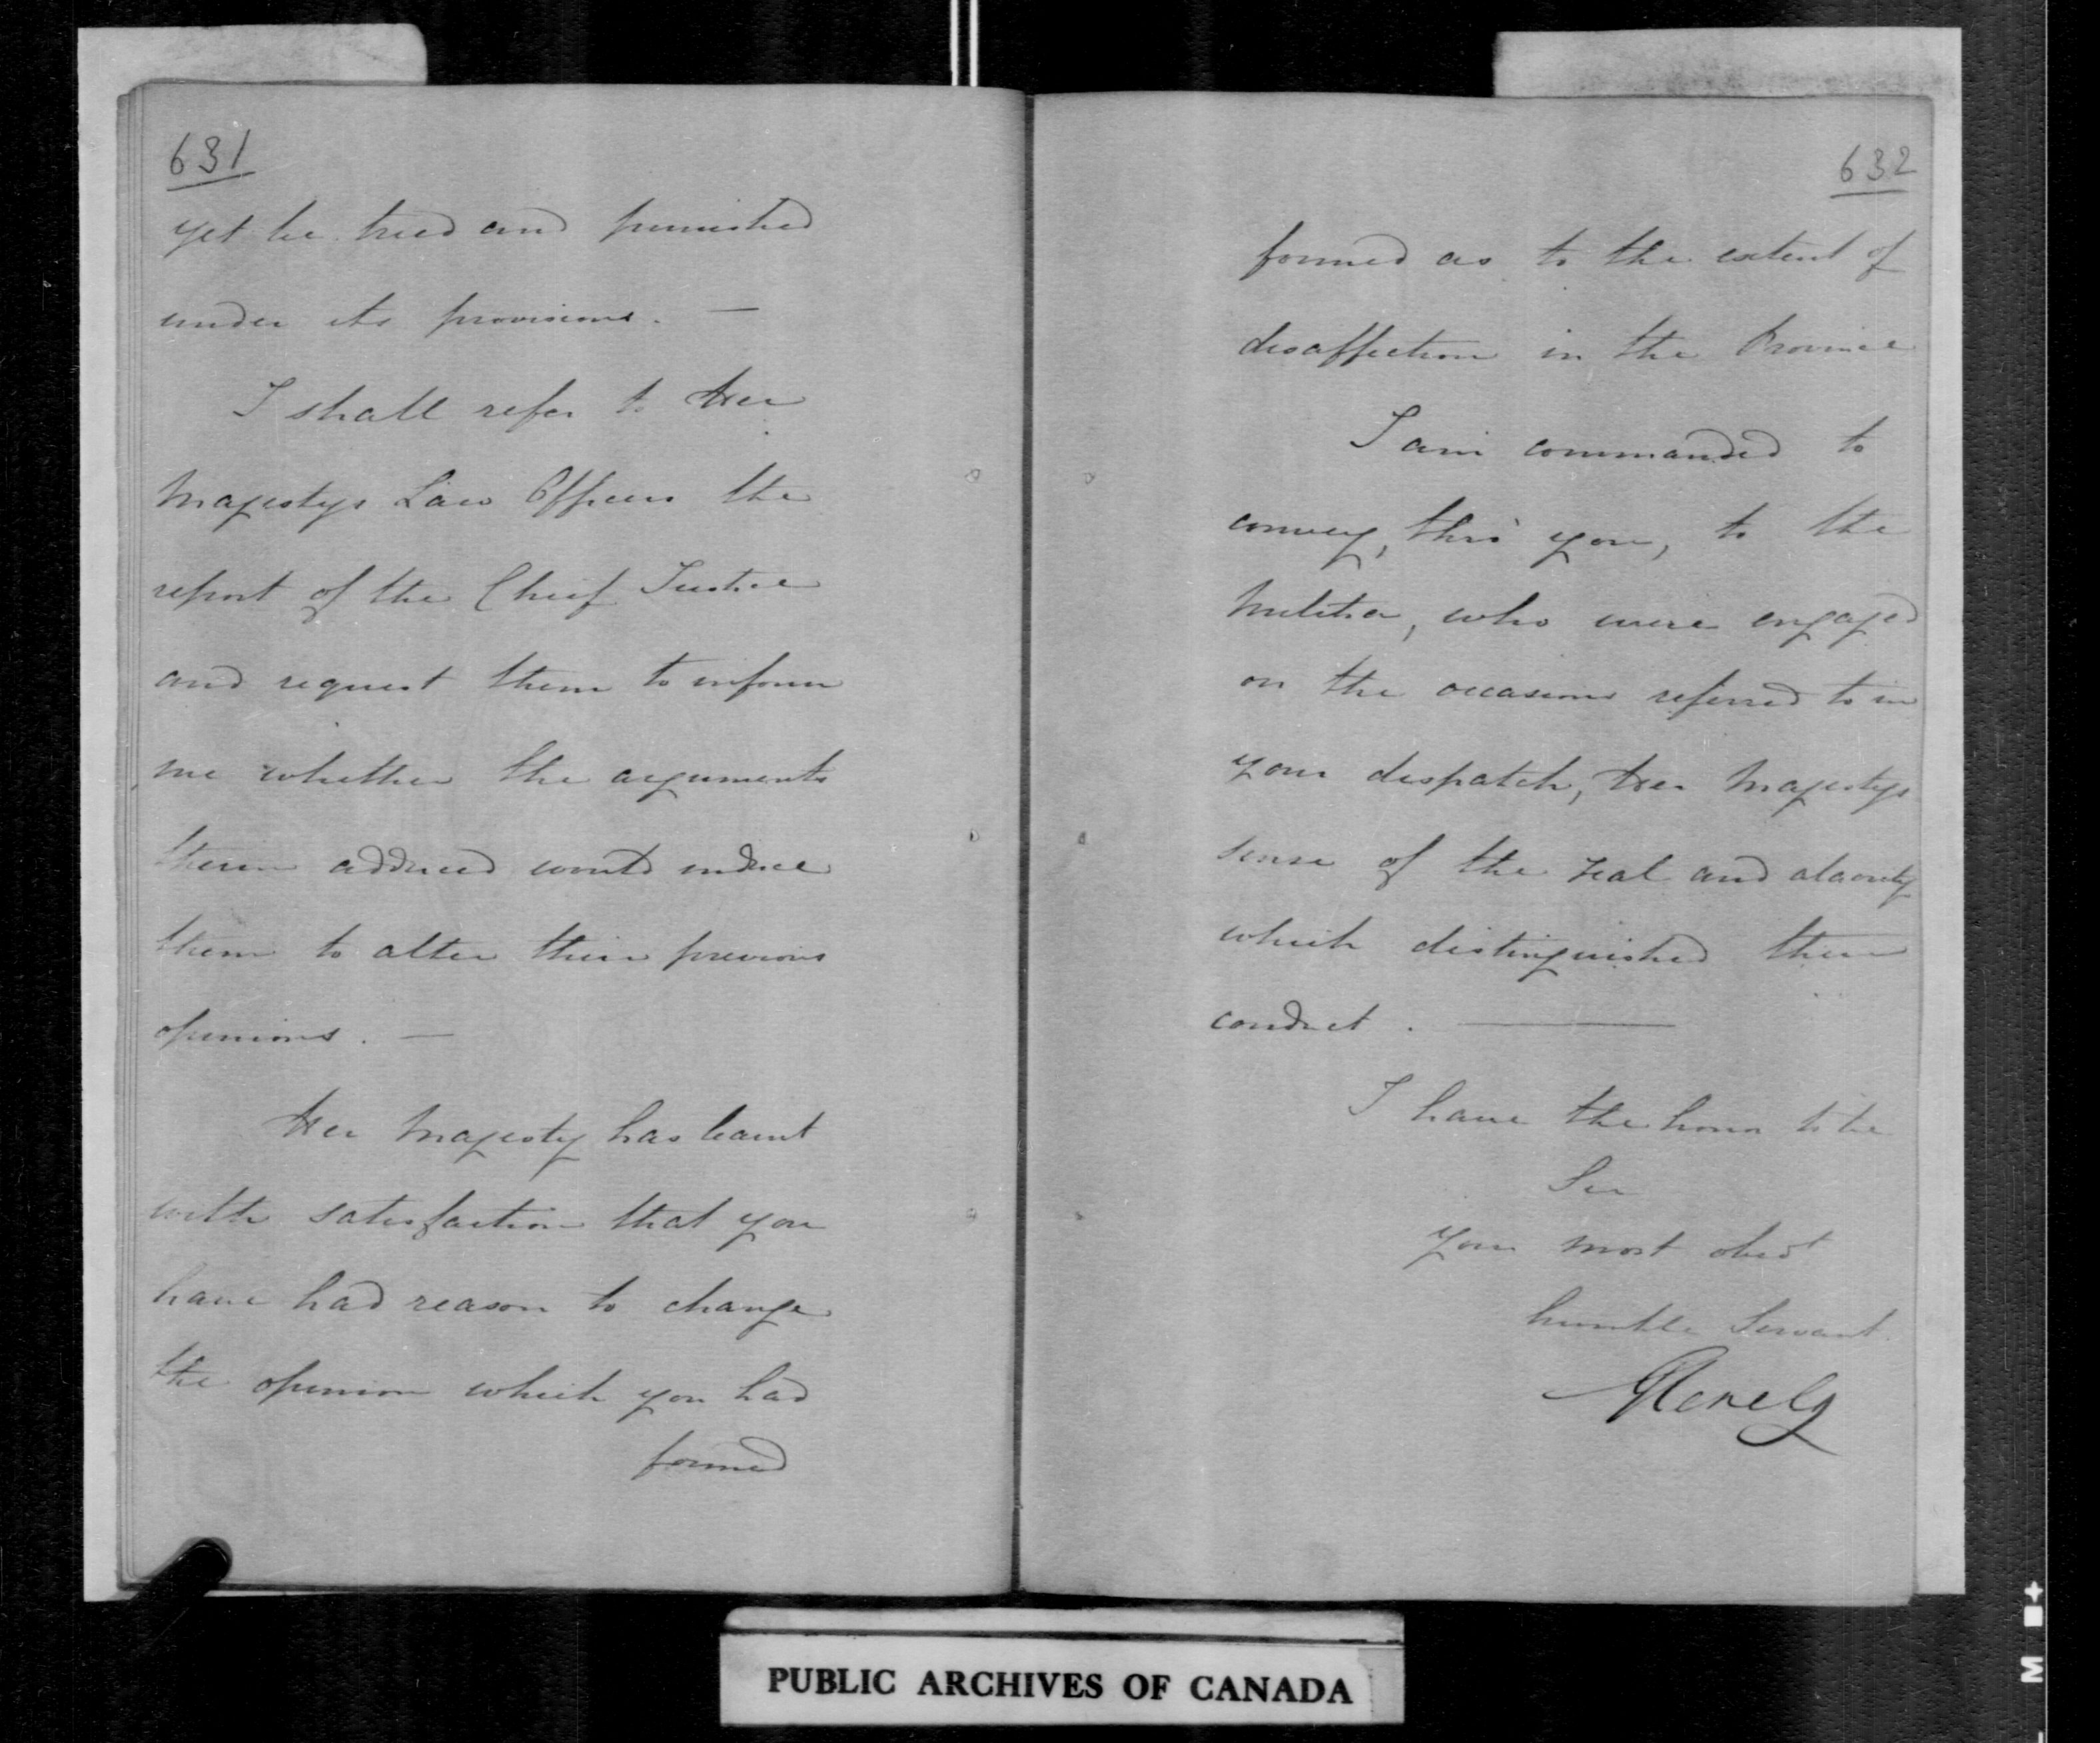 631
yet be tried and punished
under its provisions. —
I shall refer to Her
Majestys Law Officers the
report of the Chief Justice
and request them to inform
me whether the arguments
therein adduced would induce
them to alter their previous
opinions. —
Her Majesty has learnt
with satisfaction that you
have had reason to change
the opinion which you had
formed
632
formed as to the extent of
disaffection in the Province
I am commanded to
convey, thro' you, to the
Militia, who were engaged
on the occasions referred to in
your dispatch, Her Majestys
sense of the zeal and alacrity
which distinguished their
conduct. —
I have the honor to be
Sir
Your most obedt
humble Servant.
Glenelg
PUBLIC ARCHIVES OF CANADA